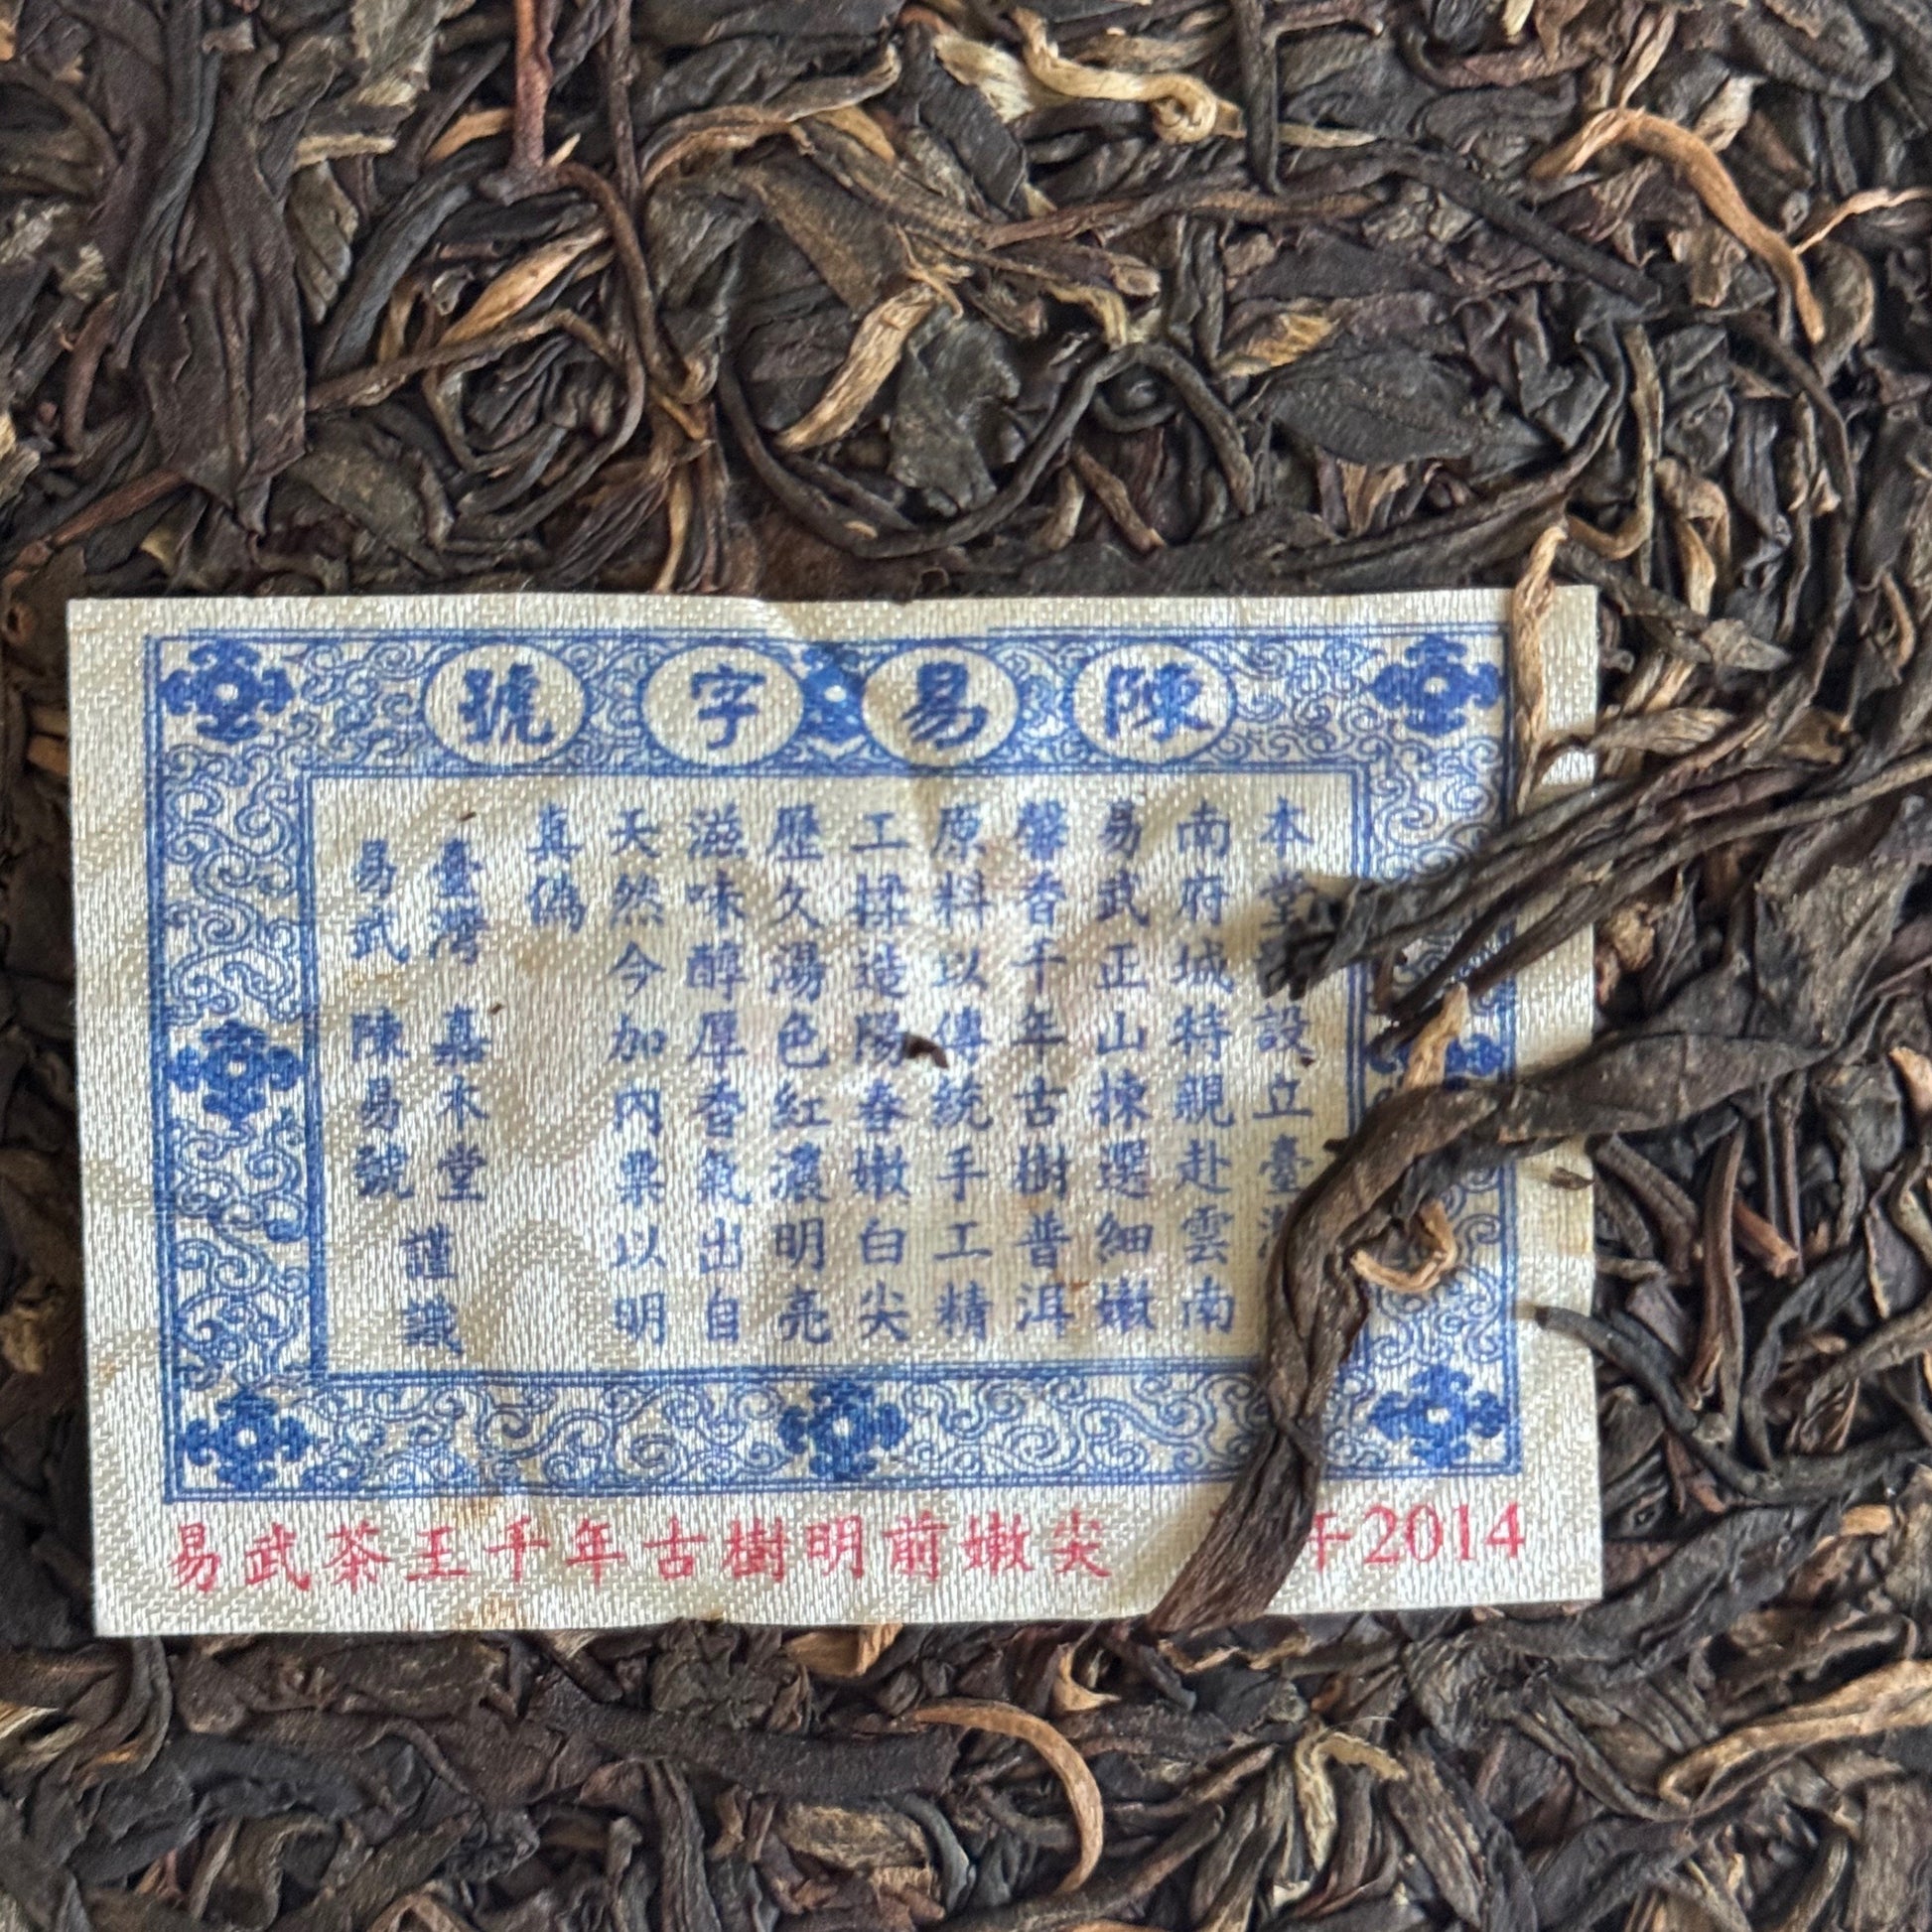 陳易字號
本堂設立臺
南府城特親赴雲南
易武正山揀選細嫩
馨香千年古樹普洱
原料以傳統手工精
工揉造陽春嫩白尖
歷久湯色紅濃明亮
滋味醇厚香氣出自
天然今加內票以明
真偽
臺灣 嘉木堂
易武 陳易號
謹識
易武茶王千年古樹明前嫩尖 午2014